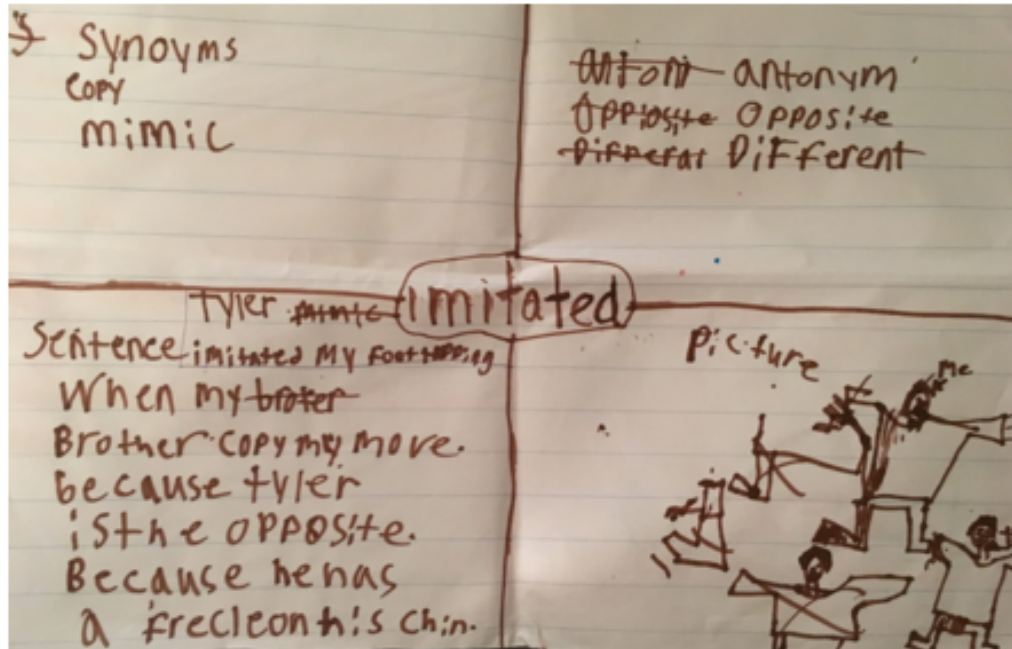 Synoyms
copy
mimic
antoni antonym
Oppiosite Opposite
Differat Different
imitated
Tyler mimic
Sentence imitated My foot tapping
When my broter
Brother copy my move.
because tyler
is the opposite.
Because he has
a frecle on his chin.
Picture
Me